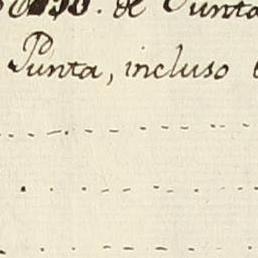 de Punta
Punta, incluso